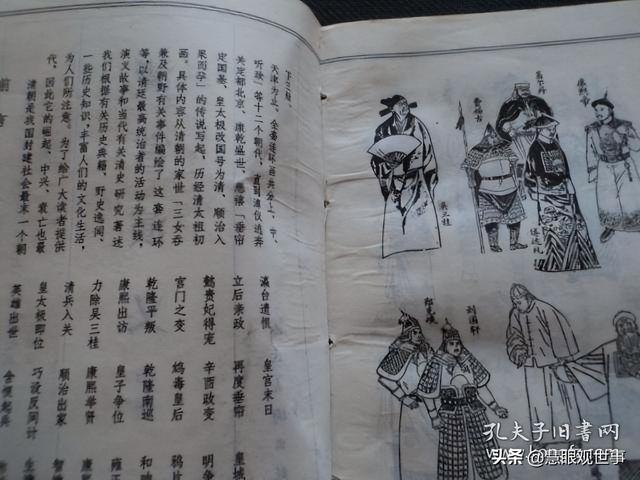 前言
清朝是我国封建社会最末一个朝
代，因此它的崛起、中兴、衰亡也最
为人们所注意。为了给广大读者提供
一些历史知识，丰富人们的文化生活，
我们根据有关历史典籍、野史逸闻、
演义故事和当代有关清史研究著述
等，以清廷最高统治者的活动为主线，
兼及朝野有关事件编绘了这套连环
画。具体内容从清朝的家世“三女吞
果而孕”的传说写起，历经清太祖初
定国基、皇太极改国号为清、顺治入
关定都北京、康乾盛世、慈禧“垂帘
听政”等十二个朝代，直到溥仪逃奔
天津为止。全套连环画共分上、中、
下三辑。
英雄出世
皇太极即位 巧设反间计
清兵入关 顺治出家
力除吴三桂 康熙举贤 康熙
康熙出访 皇子争位 雍正
乾隆平叛 乾隆南巡
宫门之变 鸩毒皇后 鸦片
懿贵妃得宠 辛酉政变 明争
立后亲政 再度垂帘 皇城
瀛台遗恨 皇宫末日
康熙帝
费扬古
吴三桂
刘国轩
孔夫子旧书网
头条 @慧眼观世事